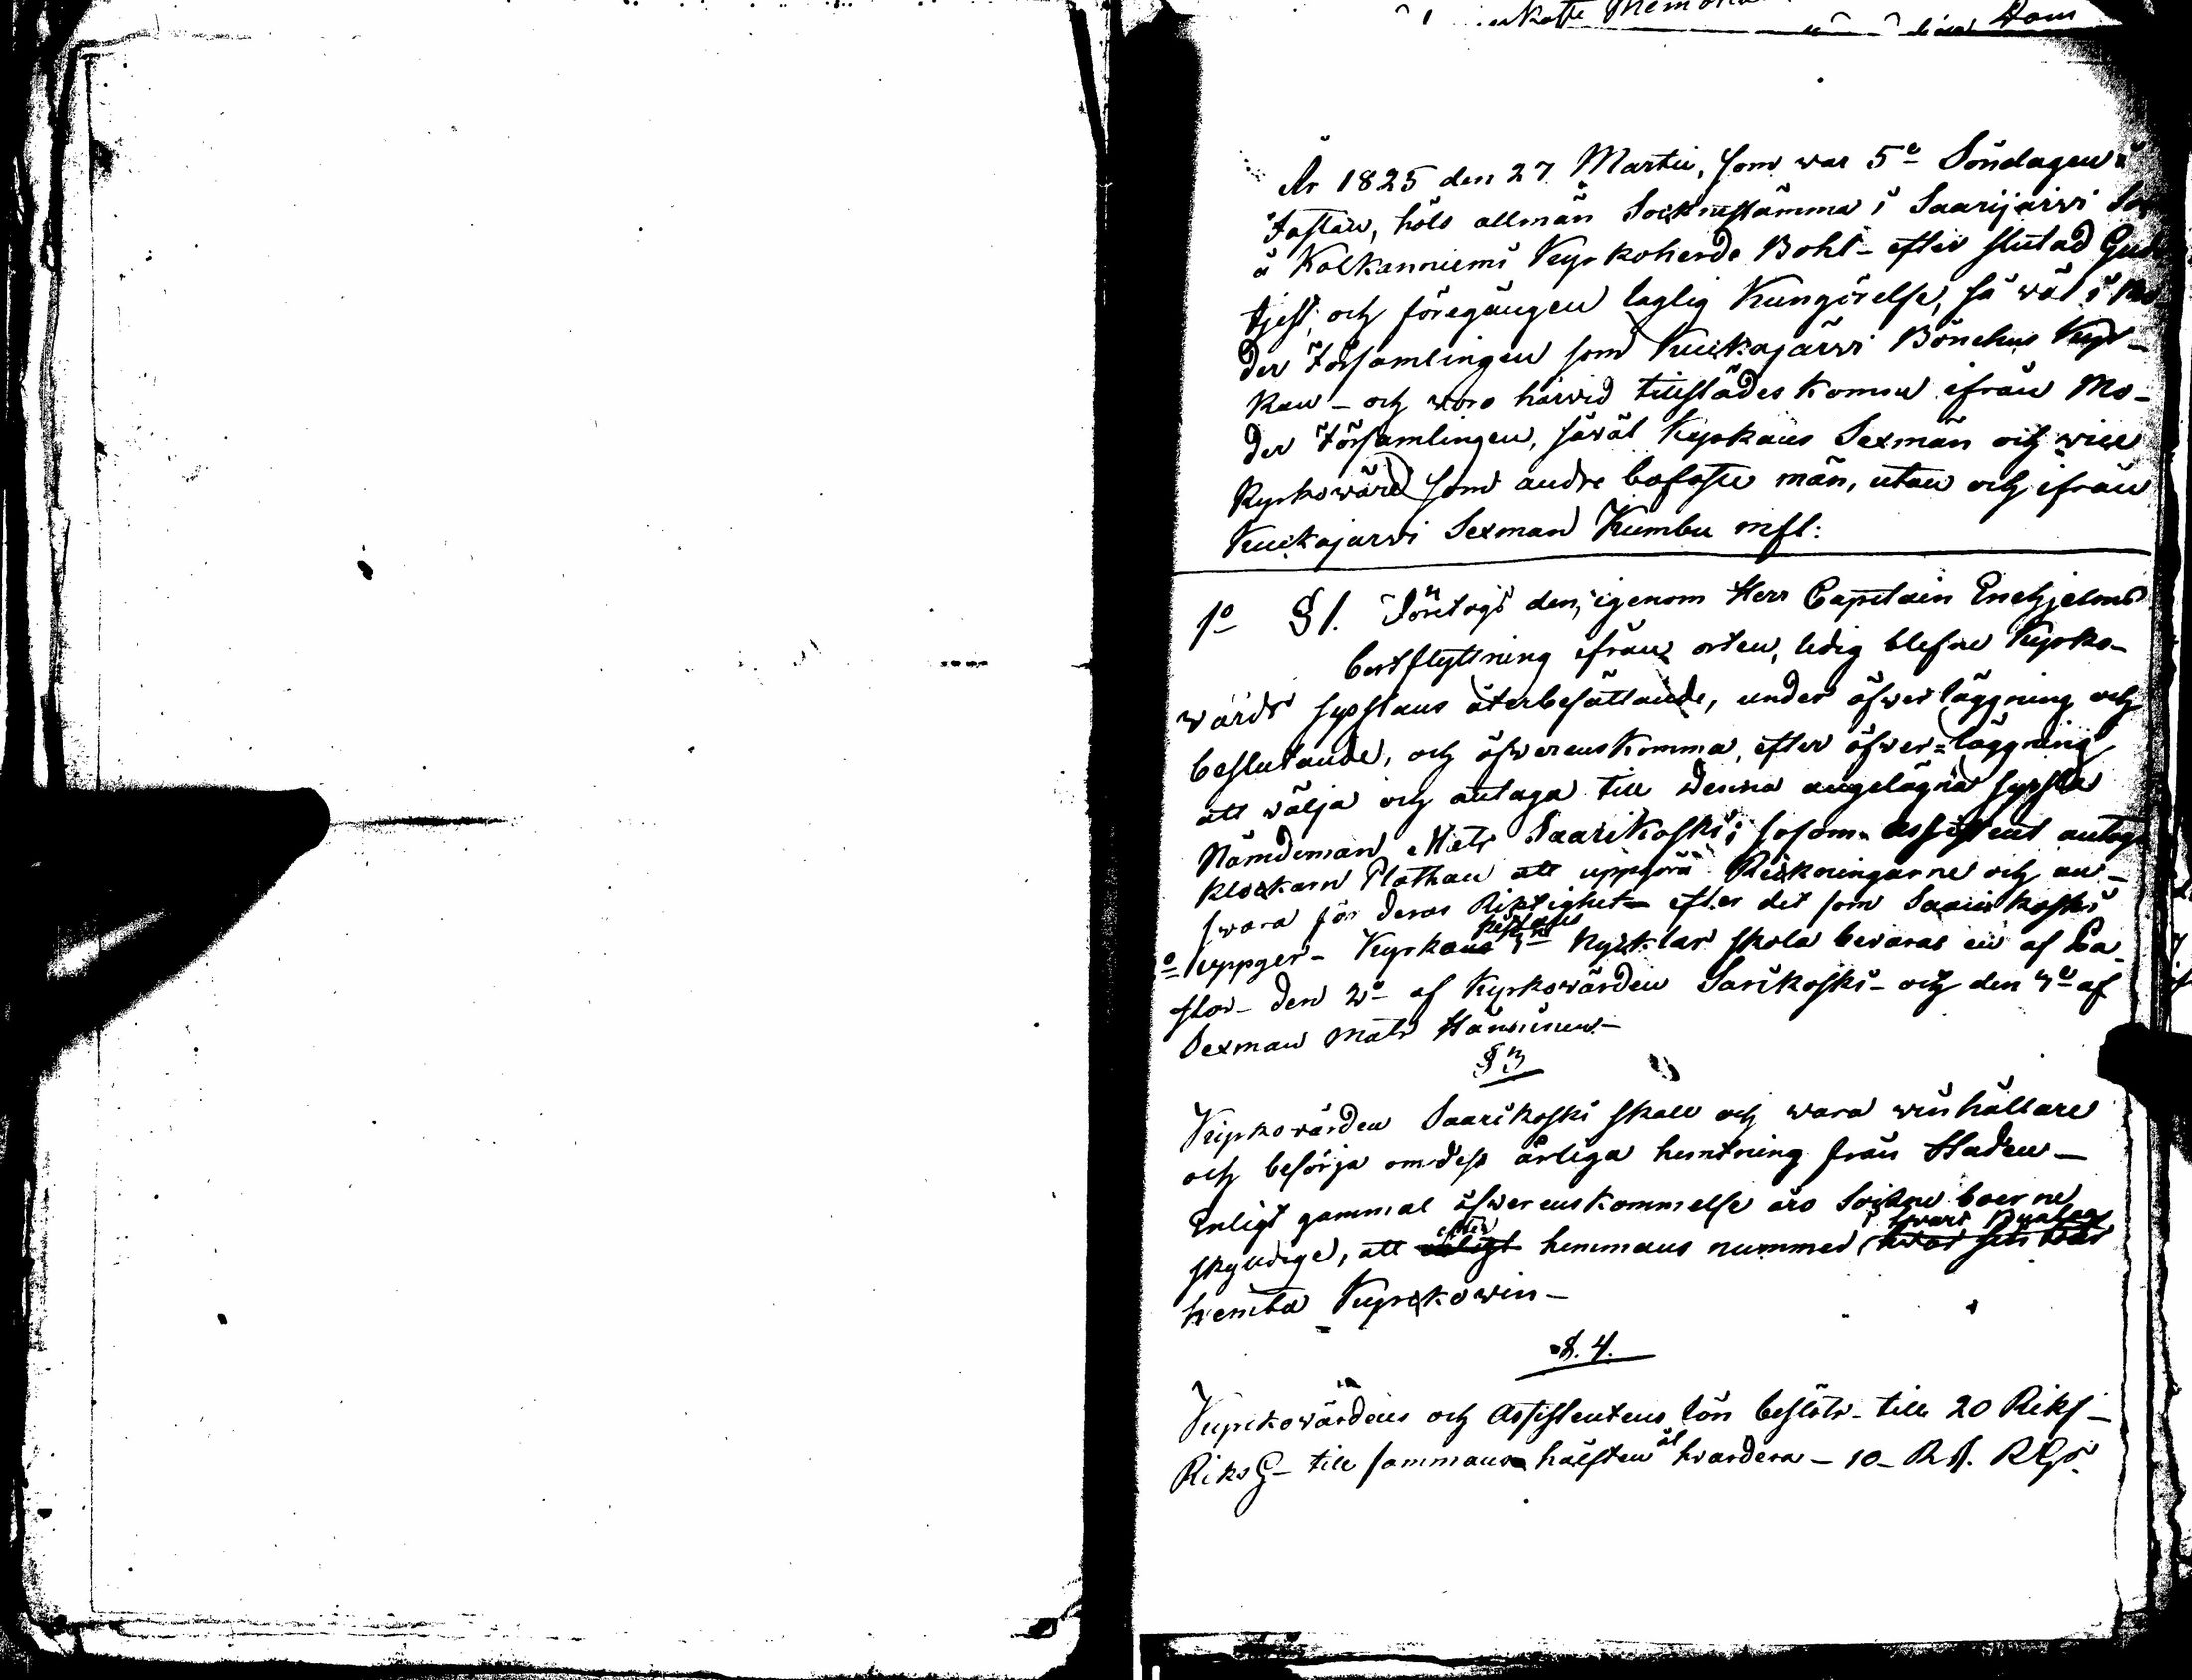 År 1825 den 27 Martii, som war 5º Söndagen i
Fastan, höls allmän Socknestämma i Saarijärvi
å Kolkanniemi Kyrkoherde Bohl - efter slutad
tjest, och föregången laglig Kungörelse, så wäl i Mo
der Församlingen som Kuckajärwi Bönehus Kyr-
kan - och woro härwid tillstädes komne ifrån Mo-
der Församlingen, såväl Kyrkans Sexmän och
Kyrkowärd som andre bofaste män, utan och ifrån
Kuckajarvi Sexman Kumbu mfl:
1º § 1. Företogs den, igenom Herr Capitain Enehjelms
bortflyttning ifrån orten, ledig blefne Kyrko-
wärds sysslans återbesättande, under öfwerläggning och
beslutande, och öfwerenskomma, efter öfwer=läggning
att wälja och antaga till denna angelägna syssla
Nämdeman Matts Saarikoski; sosom Assistent antogs
klockarn Plathan att uppgöra Räkningarne och an-
swara för deras Riktighet - efter det som Saarikoski
uppger - Kyrkans kistans 3ne Nycklar skola bevaras en af Pa-
stor - den 2º af Kyrkowärden Sarikoski - och den 3º af
Sexman Mats Hänninen -
§ 3
Kyrkowärden Saarikoski skall och wara winhållare
och besörja om dess årliga hemtning från Staden -
Enligt gammal öfwerenskommelse äro Sockne boerne
skyldige, att efter hemmans nummer i hwars Byalag
hemta Kyrckowin -
§. 4.
Kyrckowärdens och Assistentens lön bestötr - till 20 Riks-
Riks G - till sammans hälften åt hvardera - 10 - Rd. RGs